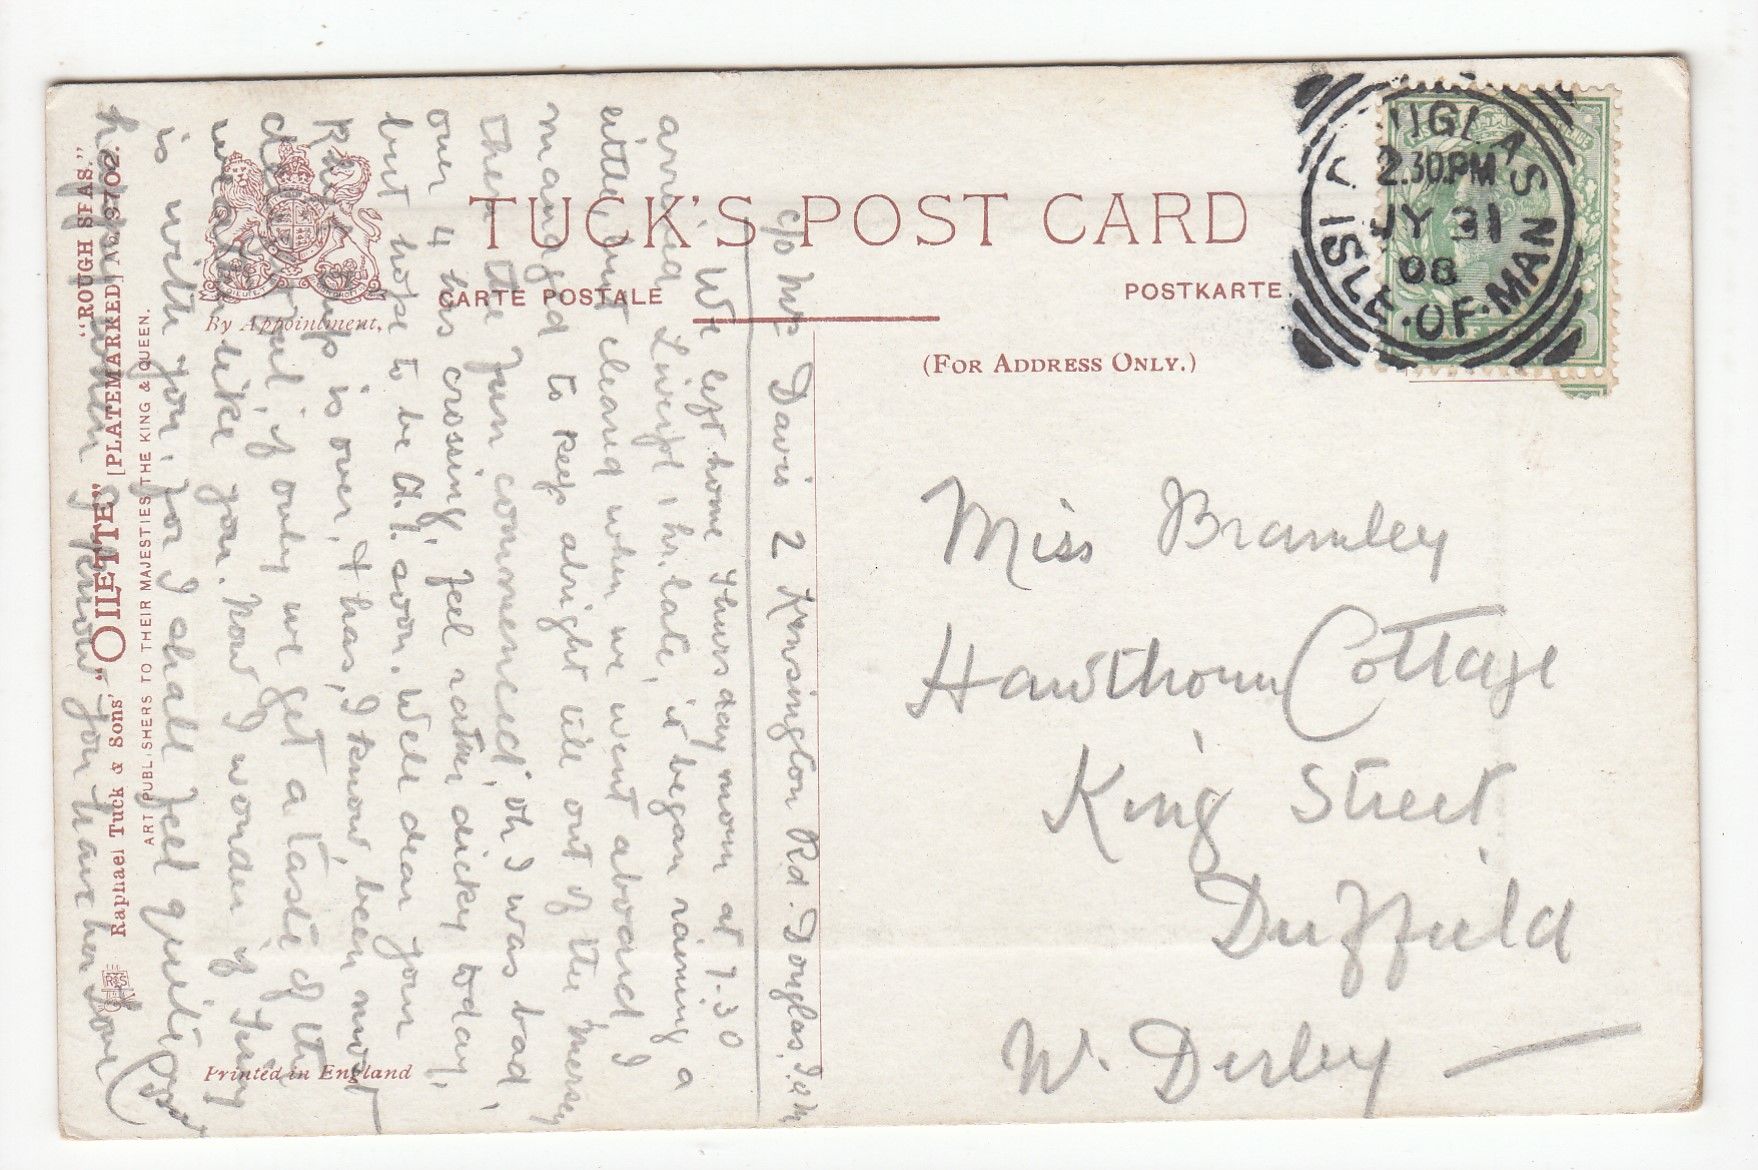 TUCK'S POST CARD
CARTE POSTALE
POSTKARTE.
(FOR ADDRESS ONLY.)
By Appointment,
"ROUGH SEAS."
Raphael Tuck & Sons' "OILETTE" [PLATEMARKED] No 3702.
ART PUBLISHERS TO THEIR MAJESTIES THE KING & QUEEN.
Printed in England
UGLAS
2.30.PM
JY 31
08
ISLE.OF.MAN
Miss Bramley
Hawthorn Cottage
King Street
Duffield
W. Derby
c/o Mrs Davis 2 Kensington Rd. Douglas. I.o.M
We left home Thursday morn at 7.30
arrived Liverpl 1 hr. late, it began raining a
little but cleared when we went aboard I
managed to keep alright till out of the Mersey
then the fun commenced, oh I was bad,
over 4 hrs crossing, feel rather dicky today,
but hope to be A.1. soon. Well dear your
is over, & has, I know, been most
if only we get a taste of the
like you. Now I wonder if Fury
is with you, for I shall feel quite
happy when I know you have her love